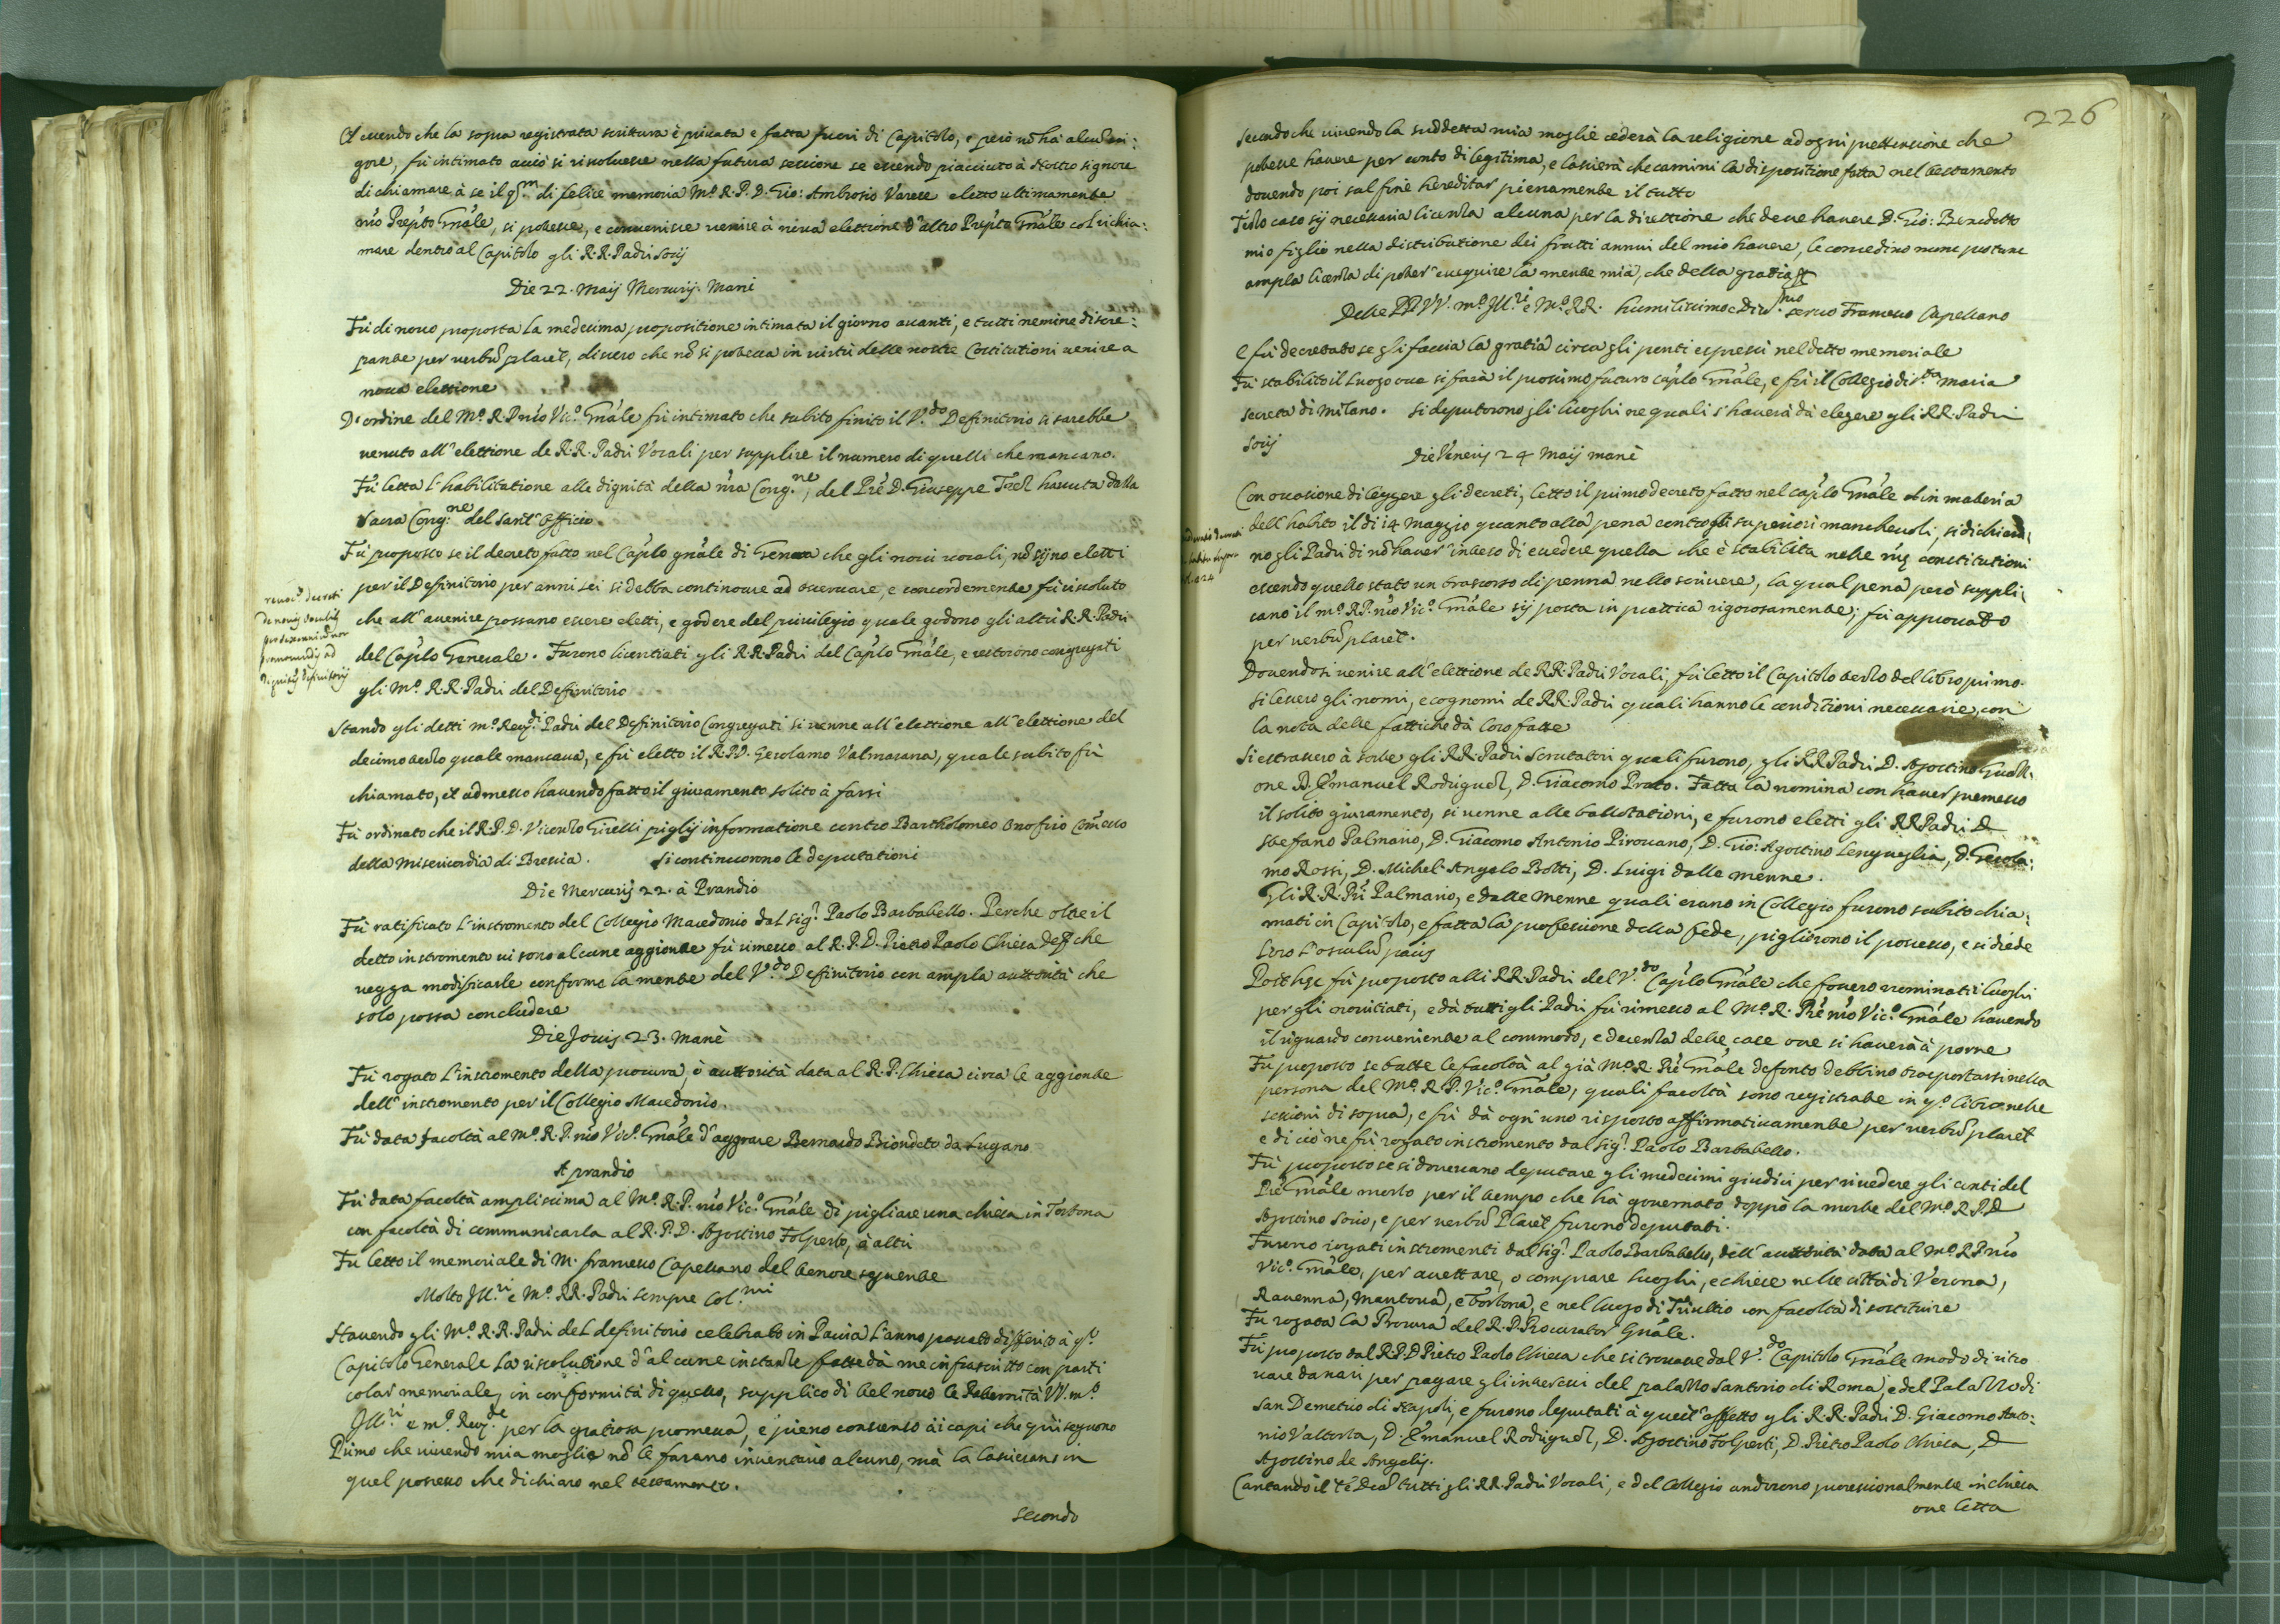 Essendo che la sopra registrata scrittura è privata e fatta fuori di Capitolo, e però nõ hà alcũ vi:
gore, fù intimato acciò si risolvesse nella futura sessione se essendo piacciuto à Nostro Signore
di chiamare à se il qm di felice memoria Mº. R. P. D. Gio: Ambrosio Varese eletto ultimamente
nr̃o Prep̃to Gñale, si potesse, e convenisse venire à nova elettione d'altro Prep̃to Gñale col richia:
mare dentro al Capitolo gli R. R. Padri Socij
Die 22. Maij Mercurij. Mane
Fù di novo proposta la medesima propositione intimata il giorno avanti, e tutti nemine discre:
pante per verbũ placet, dissero che nõ si poteva in virtù delle nostre Costitutioni venire a
nova elettione
D'ordine del Mº. R. P. nr̃o Vicº. Gñale fù intimato che subito finito il V.do Definitorio si sarebbe
venuto all'elettione de R. R. Padri Vocali per supplire il numero di quelli che mancano.
Fù letta l'habilitatione alle dignità della nr̃a Cong.ne, del Prẽ D. Giuseppe havuta dalla
Sacra Cong.ne del Sant'Officio.
Fù proposto se il decreto fatto nel Cap̃lo gñale di Genova che gli novi vocali, nõ sijno eletti
per il Definitorio per anni sei si debba continovare ad osservare, e concordemente fù risoluto
che all'avenire possano essere eletti, e godere del privilegio quale godono gli altri R. R. Padri
del Cap̃lo Generale. Furono licentiati gli R. R. Padri del Cap̃lo Gñale, e restorono congregati
gli Mº. R. R. Padri del Definitorio
revocº. decreti
de novis vocalib.
per sexennium non
promovendis ad
dignitates definitorij
Stando gli detti mº. Rev.di Padri del Definitorio Congregati si venne all'elettione all'elettione del
decimo terzo quale mancava, e fù eletto il R. P. D. Gerolamo Valmarana, quale subito fù
chiamato, et admesso havendo fatto il giuramento solito à farsi
Fù ordinato che il R. P. D. Vicenzo Girelli piglij informatione contro Bartholomeo Onofrio Com̃esso
della Misericordia di Brescia. Si continuorono le deputationi
Die Mercurij 22. à Prandio
Fù ratificato l'instromento del Collegio Macedonio dal Sig.r Paolo Barbabello. Perche oltre il
detto instromento vi sono alcune aggionte fù rimesso al R. P. D. Pietro Paolo Chiesa che
vegga modificarle conforme la mente del V.do Definitorio con ampla auttorità che
solo possa concludere
Die Jovis 23. Manè
Fù rogato l'instromento della procura, ò auttorità data al R. P. Chiesa circa le aggionte
dell'instromento per il Collegio Macedonio.
Fù data facoltà al Mº. R. P. nr̃o Vicº. Gñale d'aggrare Bernardo Biondeto da Lugano
A prandio
Fù data facoltà amplissima al Mº. R. P. nr̃o Vicº. Gñale di pigliare una chiesa in Tortona
con facoltà di communicarla al R. P. D. Agostino Folperto, ò altri
Fu letto il memoriale di M. Francesco Capessano del tenore seguente
Molto Ill.ri e Mº. RR. Padri sempre Col.mi
Havendo gli Mº. R. R. Padri del definitorio celebrato in Pavia l'anno passato differito à qº.
Capitolo Generale la risolutione d'alcune instanze fatte dà me infrascritto con parti
colar memoriale, in conformità di questo, supplico di bel novo le Paternità VV. mº.
Ill.ri e mº. Rev.de per la gratiosa promessa, e pieno consenso ài capi che quì seguono
Primo che vivendo mia moglie nõ le farano inventario alcuno, mà la lascierano in
quel possesso che dichiaro nel testamento.
secondo
226
Secondo che vivendo la suddetta mia moglie cederà la religione ad ogni prettensione che
potesse havere per conto di legitima, e lascierà che camini la dispositione fatta nel testamento
dovendo poi sul fine hereditar' pienamente il tutto
Terzo caso sij necessaria licenza alcuna per la direttione che deve havere D. Gio: Benedetto
mio figlio nella distributione dei frutti annui del mio havere, le concedino
ampla licenza di poter' esseguire la mente mia, che della gratia
Delle PP. VV. mº. Ill.ri e Mº. RR. humilissimo e Div.mo servo Francesco Capessano
E fù decretato se gli faccia la gratia circa gli ponti espressi nel detto memoriale
Fù stabilito il Luogo ove si farà il prossimo futuro Cap̃lo Gñale, e fù il Collegio di S.ta Maria
secreta di Milano. Si deputorono gli luoghi ne quali s'haverà dà elegere gli RR. Padri
Socij
Die Veneris 24 Maij manè
Con occasione di leggere gli decreti, letto il primo decreto fatto nel cap̃lo Gñale in materia
dell'habito il dì 14 Maggio quanto alla pena contro gli superiori manchevoli, si dichiara:
no gli Padri di nõ haver' inteso di eccedere quella che è stabilita nelle nr̃e constitutioni
essendo quello stato un trascorso di penna nello scrivere, la qual pena però suppli:
cano il mº. RP. nr̃o Vicº. Gñale sij posta in prattica rigorosamente; fù approvato
per verbũ placet.
Dovendosi venire all'elettione de RR. Padri Vocali, fù letto il Capitolo terzo del libro primo.
Si lessero gli nomi, e cognomi de RR. Padri quali hanno le conditioni necessarie, con
la nota delle fattiche dà loro fatte
Si estrassero à sorte gli RR. Padri Scrutatori quali furono, gli RR Padri D. Agostino
one D. Emanuel Rodriguez, D. Giacomo Prato. Fatta la nomina con haver premesso
il solito giuramento, si venne alle ballotationi, e furono eletti gli RR Padri D.
Stefano Palmario, D. Giacomo Antonio Pirovano, D. Gio: Agostino Lengueglia, D. Gerola:
mo Rossi, D. Michel'Angelo Botti, D. Luigi dalle menne.
Gli R. R. Pr̃i Palmario, e dalle Menne quali erano in Collegio furono subito chia:
mati in Capitolo, e fatta la professione della fede, pigliorono il possesso, e si diede
loro l'osculũ pacis
Post hęc fù proposto alli RR. Padri del V.do Cap̃lo Gñale che fossero nominati luoghi
per gli novitiati, e dà tutti gli Padri fù rimesso al Mº. R. Prẽ nr̃o Vicº. Gñale havendo
il riguardo conveniente al commodo, e decenza delle case ove si haverà à porre
Fù proposto se tutte le facoltà al già Mº. R. Prẽ Gñale defonto debbino trasportarsi nella
persona del Mº. R. P. Vicº. Gñale, quali facoltà sono registrate in qº. libro nelle
sessioni di sopra, e fù dà ogn'uno risposto affirmativamente per verbũ placet
e di ciò ne fù rogato instromento dal Sig.r Paolo Barbabello.
Fù proposto se si dovessano deputare gli medesimi giudici per rivedere gli conti del
Prẽ Gñale morto per il tempo che hà governato doppò la morte del Mº R. P. D
Agostino Socio, e per verbũ Placet furono deputati.
Furono rogati instromenti dal Sig.r Paolo Barbabello, dell'auttorità data al Mº. R. P. nr̃o
Vicº. Gñale, per accettare, o comprare luoghi, e chiese nelle città di Verona,
Ravenna, Mantova, e Tortona, e nel luogo di Trivultio con facoltà di sostituire
Fu rogata la Procura del R. P. Procurator Gñale.
Fù proposto dal R. P. D Pietro Paolo Chiesa che si trovasse dal V.do Capitolo Gñale modo di ritro
vare danari per pagare gli interessi del palazzo Santorio di Roma, e del Palazzo di
San Demetrio di Napoli, e furono deputati à quest'effetto gli R. R. Padri D. Giacomo Anto:
nio Valtorta, D. Emanuel Rodriguez, D. Agostino Folperti, D. Pietro Paolo Chiesa, D
Agostino de Angelis.
Cantando il Te Deũ tutti gli RR. Padri Vocali, e del Collegio andorono processionalmente in chiesa
ove letta